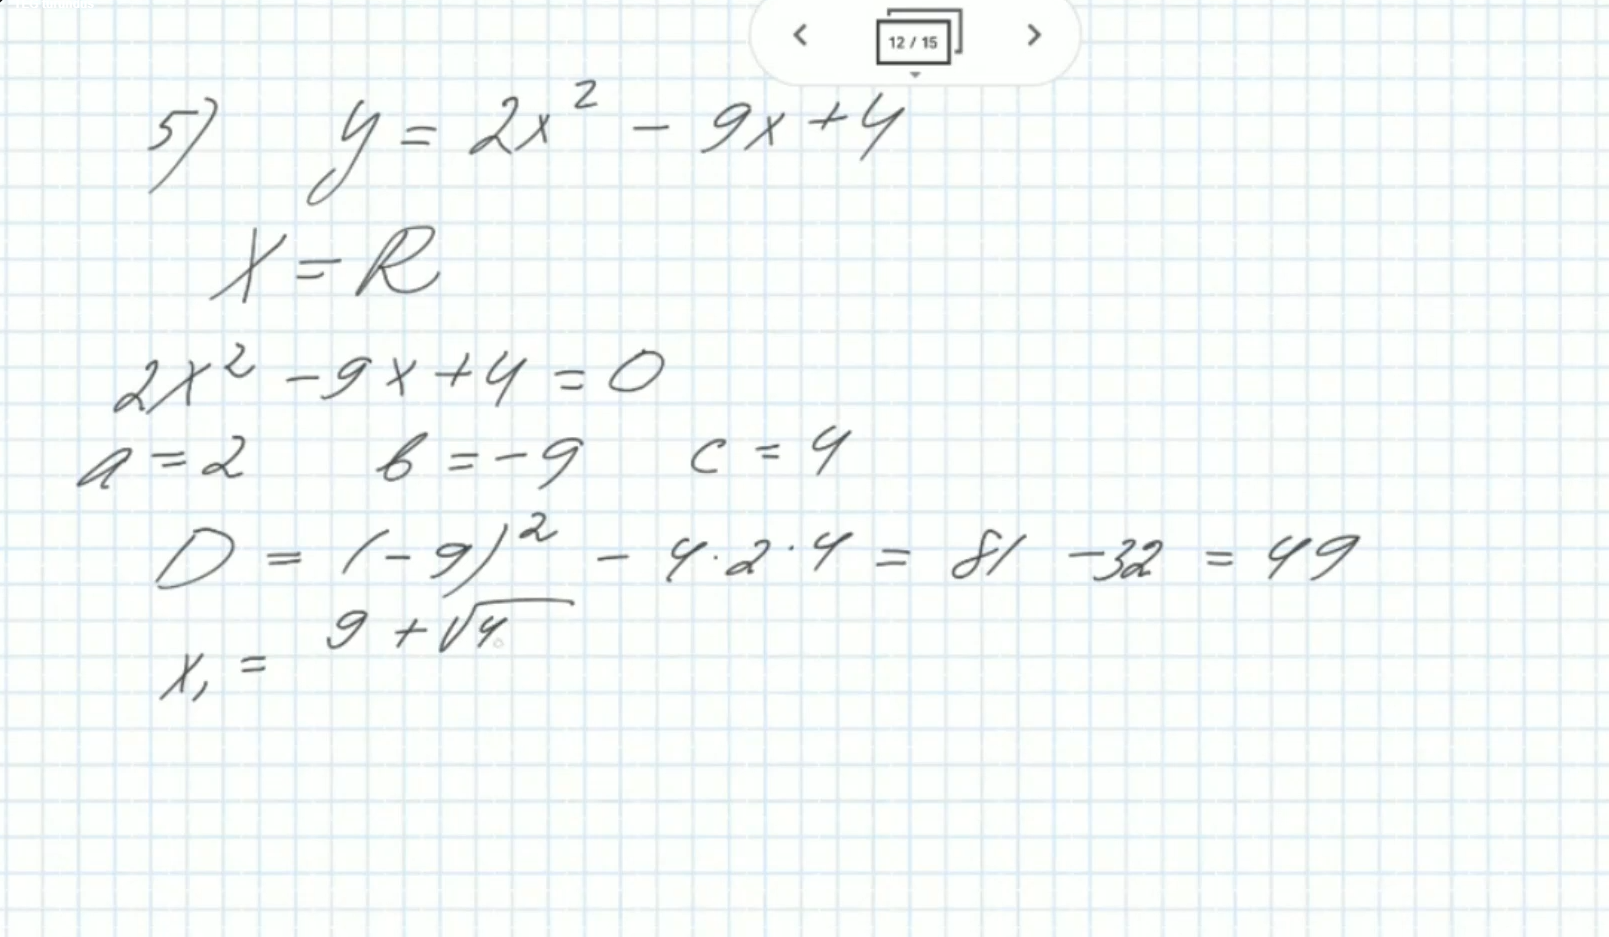 12 / 15
5) y = 2x² - 9x + 4
X = R
2x² - 9x + 4 = 0
a = 2 b = -9 c = 4
D = (-9)² - 4·2·4 = 81 - 32 = 49
x₁ = 9 + √4